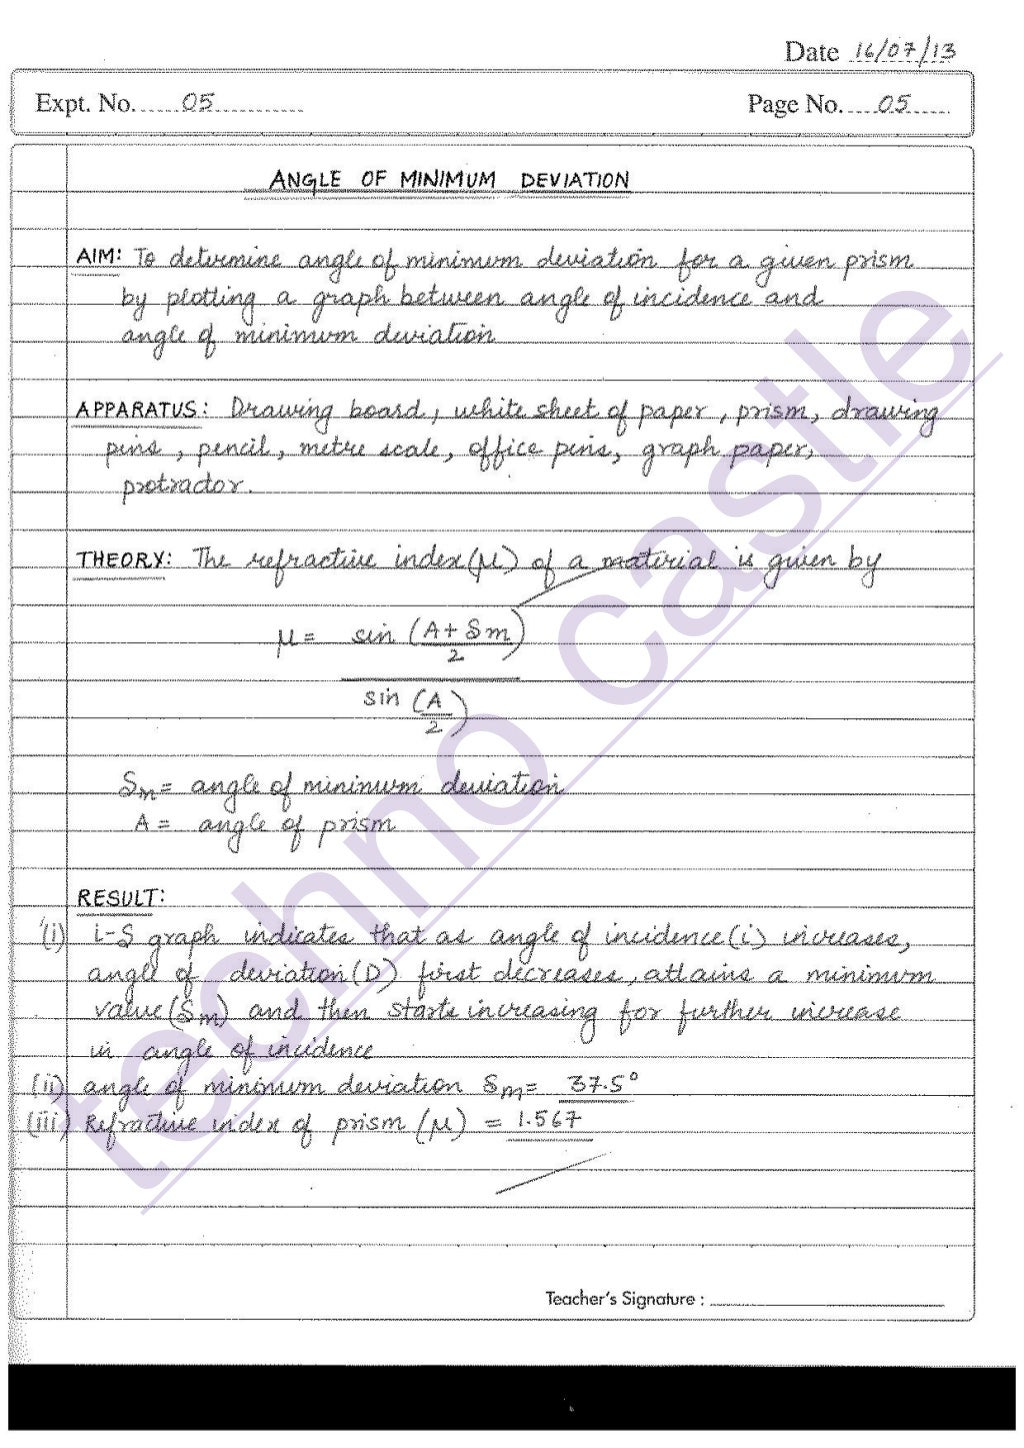 Date 16/07/13
Expt. No. 05
Page No. 05
ANGLE OF MINIMUM DEVIATION
AIM: To determine angle of minimum deviation for a given prism
by plotting a graph between angle of incidence and
angle of minimum deviation
APPARATUS: Drawing board, white sheet of paper, prism, drawing
pins, pencil, metre scale, office pins, graph paper,
protractor.
THEORY: The refractive index (μ) of a material is given by
μ = sin (A + δm / 2)
sin (A / 2)
δm = angle of minimum deviation
A = angle of prism
RESULT:
(i) i-δ graph indicates that as angle of incidence (i) increases,
angle of deviation (D) first decreases, attains a minimum
value (δm) and then starts increasing for further increase
in angle of incidence
(ii) angle of minimum deviation δm = 37.5°
(iii) Refractive index of prism (μ) = 1.567
Teacher's Signature :
techno castle